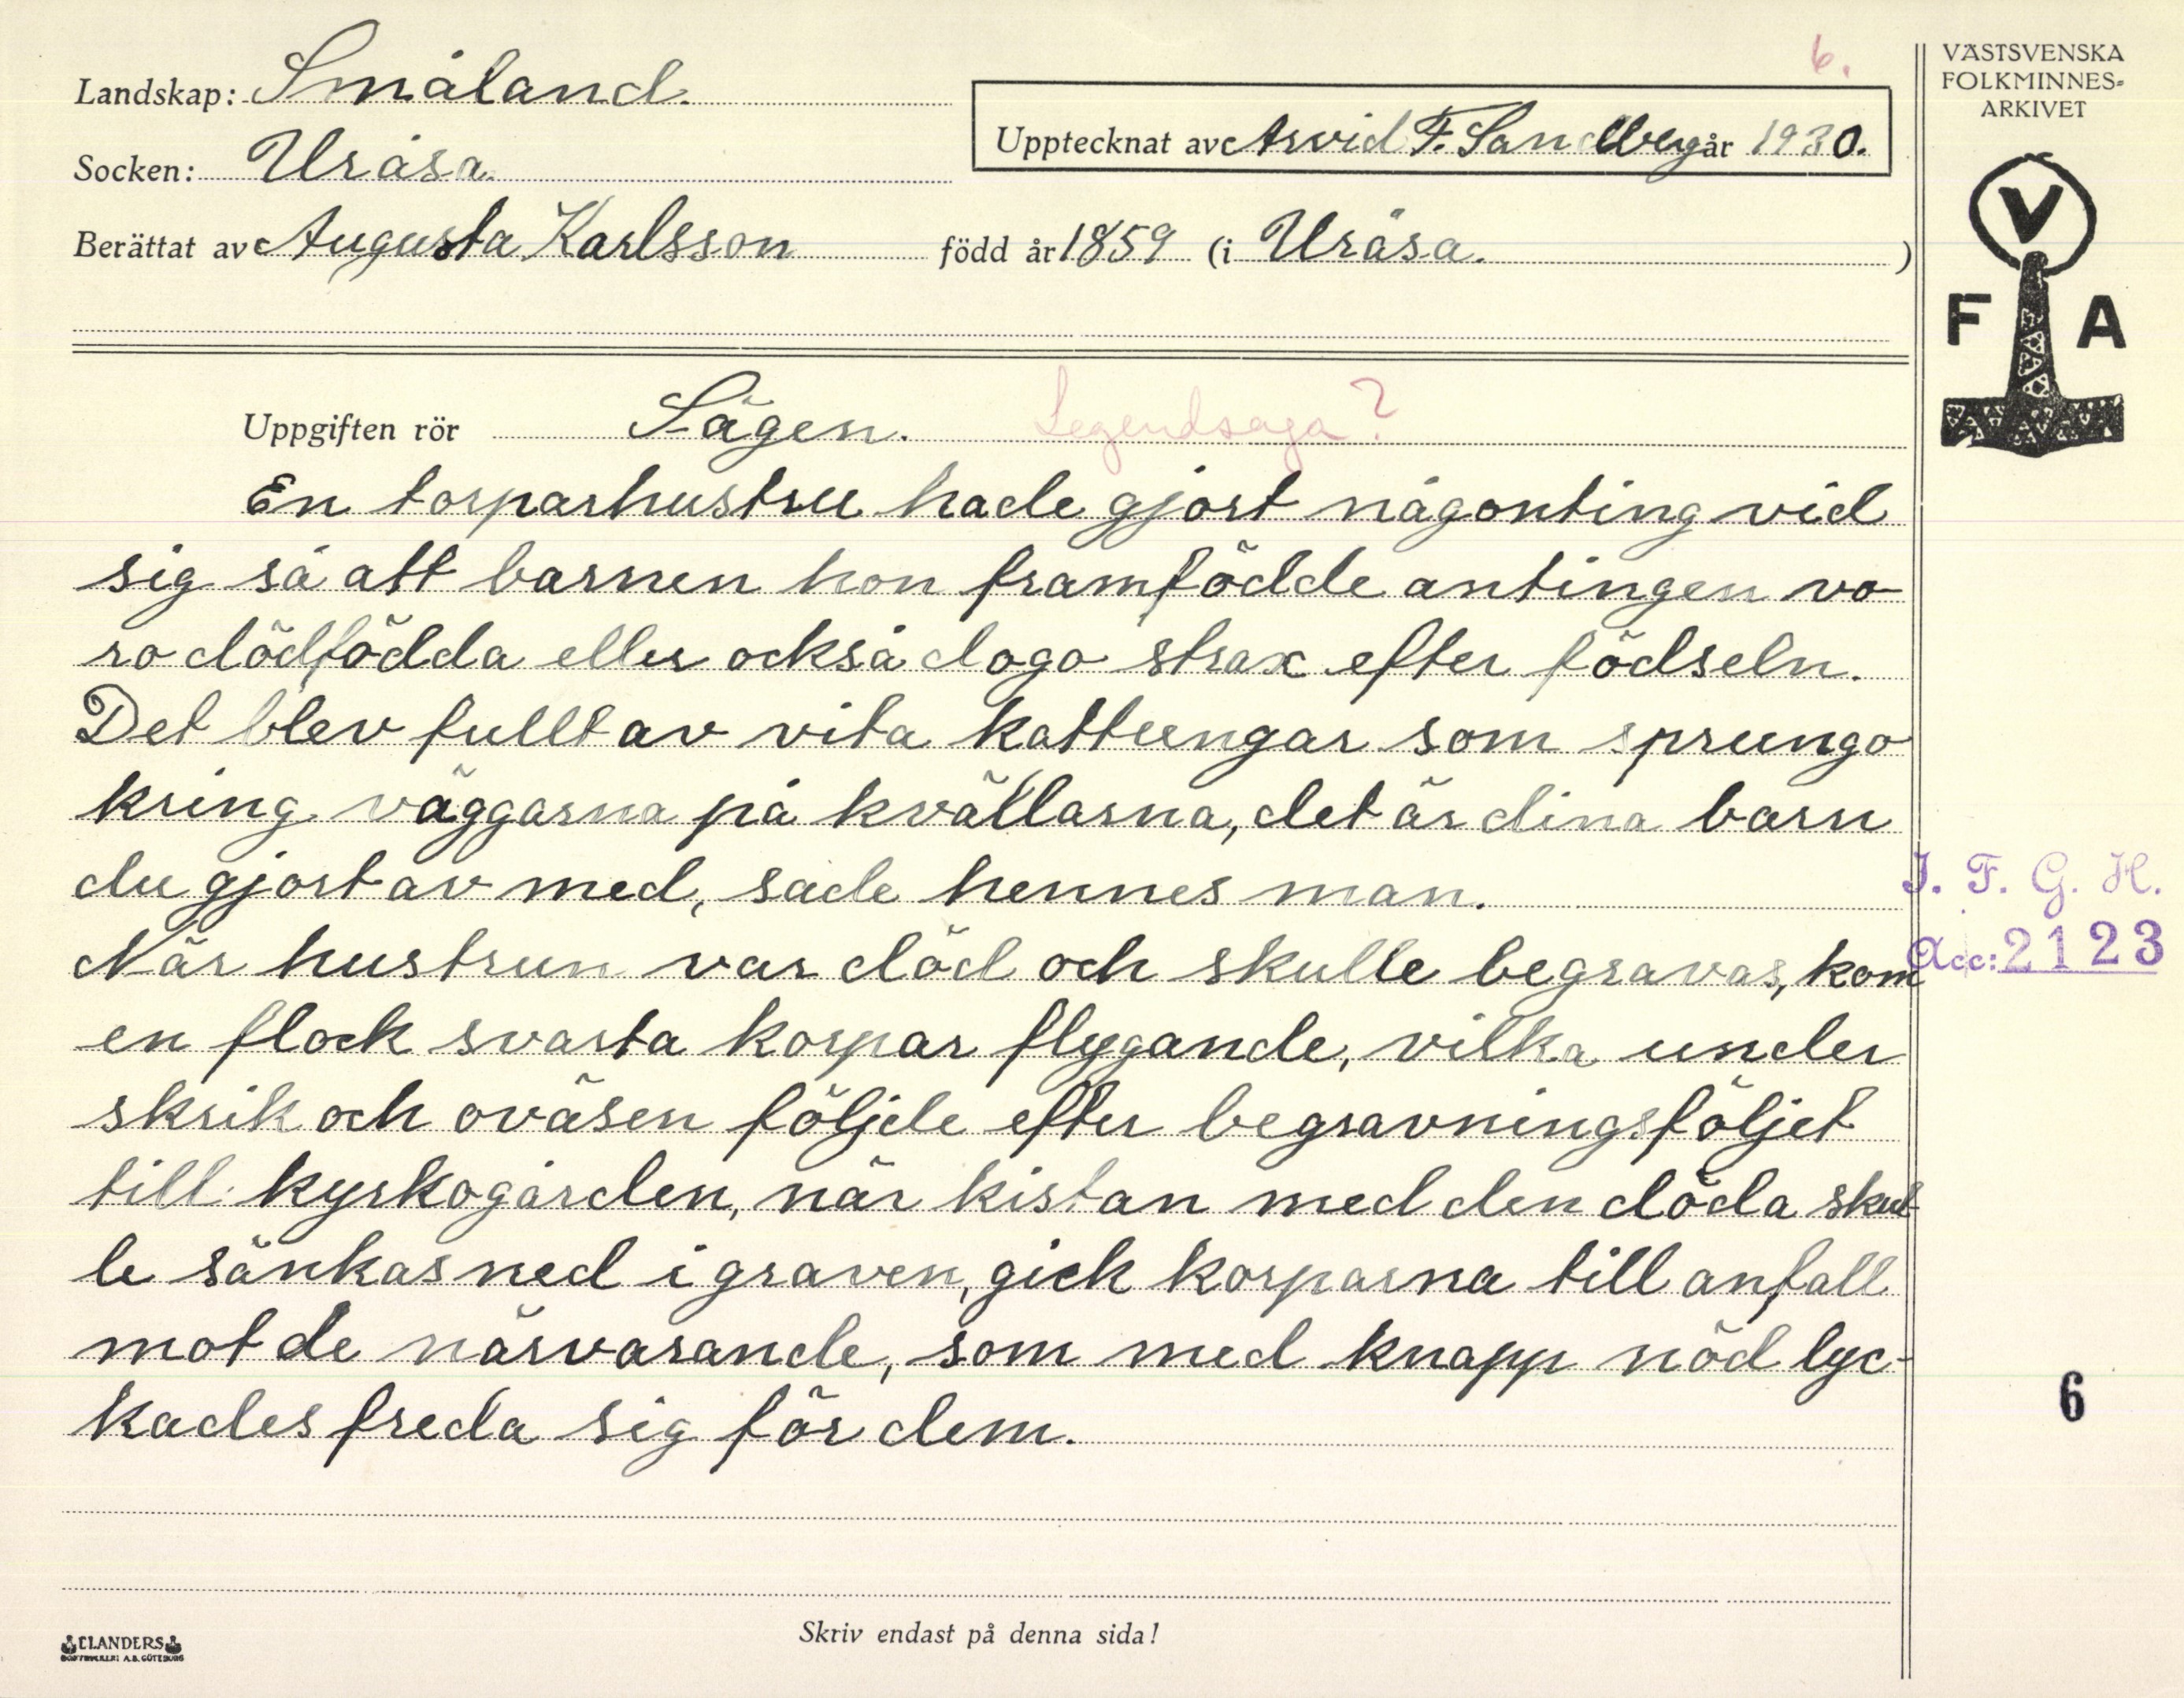 6.
VÄSTSVENSKA
FOLKMINNES-
ARKIVET
Landskap: Småland.
Upptecknat av Arvid F. Sandberg år 1930.
Socken: Uråsa.
Berättat av Augusta Karlsson född år 1859 (i Uråsa. )
V
F A
Uppgiften rör Sägen. Legendsaga?
En torparhustru hade gjort någonting vid
sig så att barnen hon framfödde antingen vo-
ro dödfödda eller också dogo strax efter födseln.
Det blev fullt av vita kattungar som sprungo
kring väggarna på kvällarna, det är dina barn
du gjort av med, sade hennes man.
När hustrun var död och skulle begravas, kom
en flock svarta korpar flygande, vilka under
skrik och oväsen följde efter begravningsföljet
till kyrkogården, när kistan med den döda skul-
le sänkas ned i graven, gick korparna till anfall
mot de närvarande, som med knapp nöd lyc-
kades freda sig för dem.
I. F. G. H.
Acc: 2123
6
Skriv endast på denna sida!
ELANDERS
BOKTRYCKERI A.B. GÖTEBORG